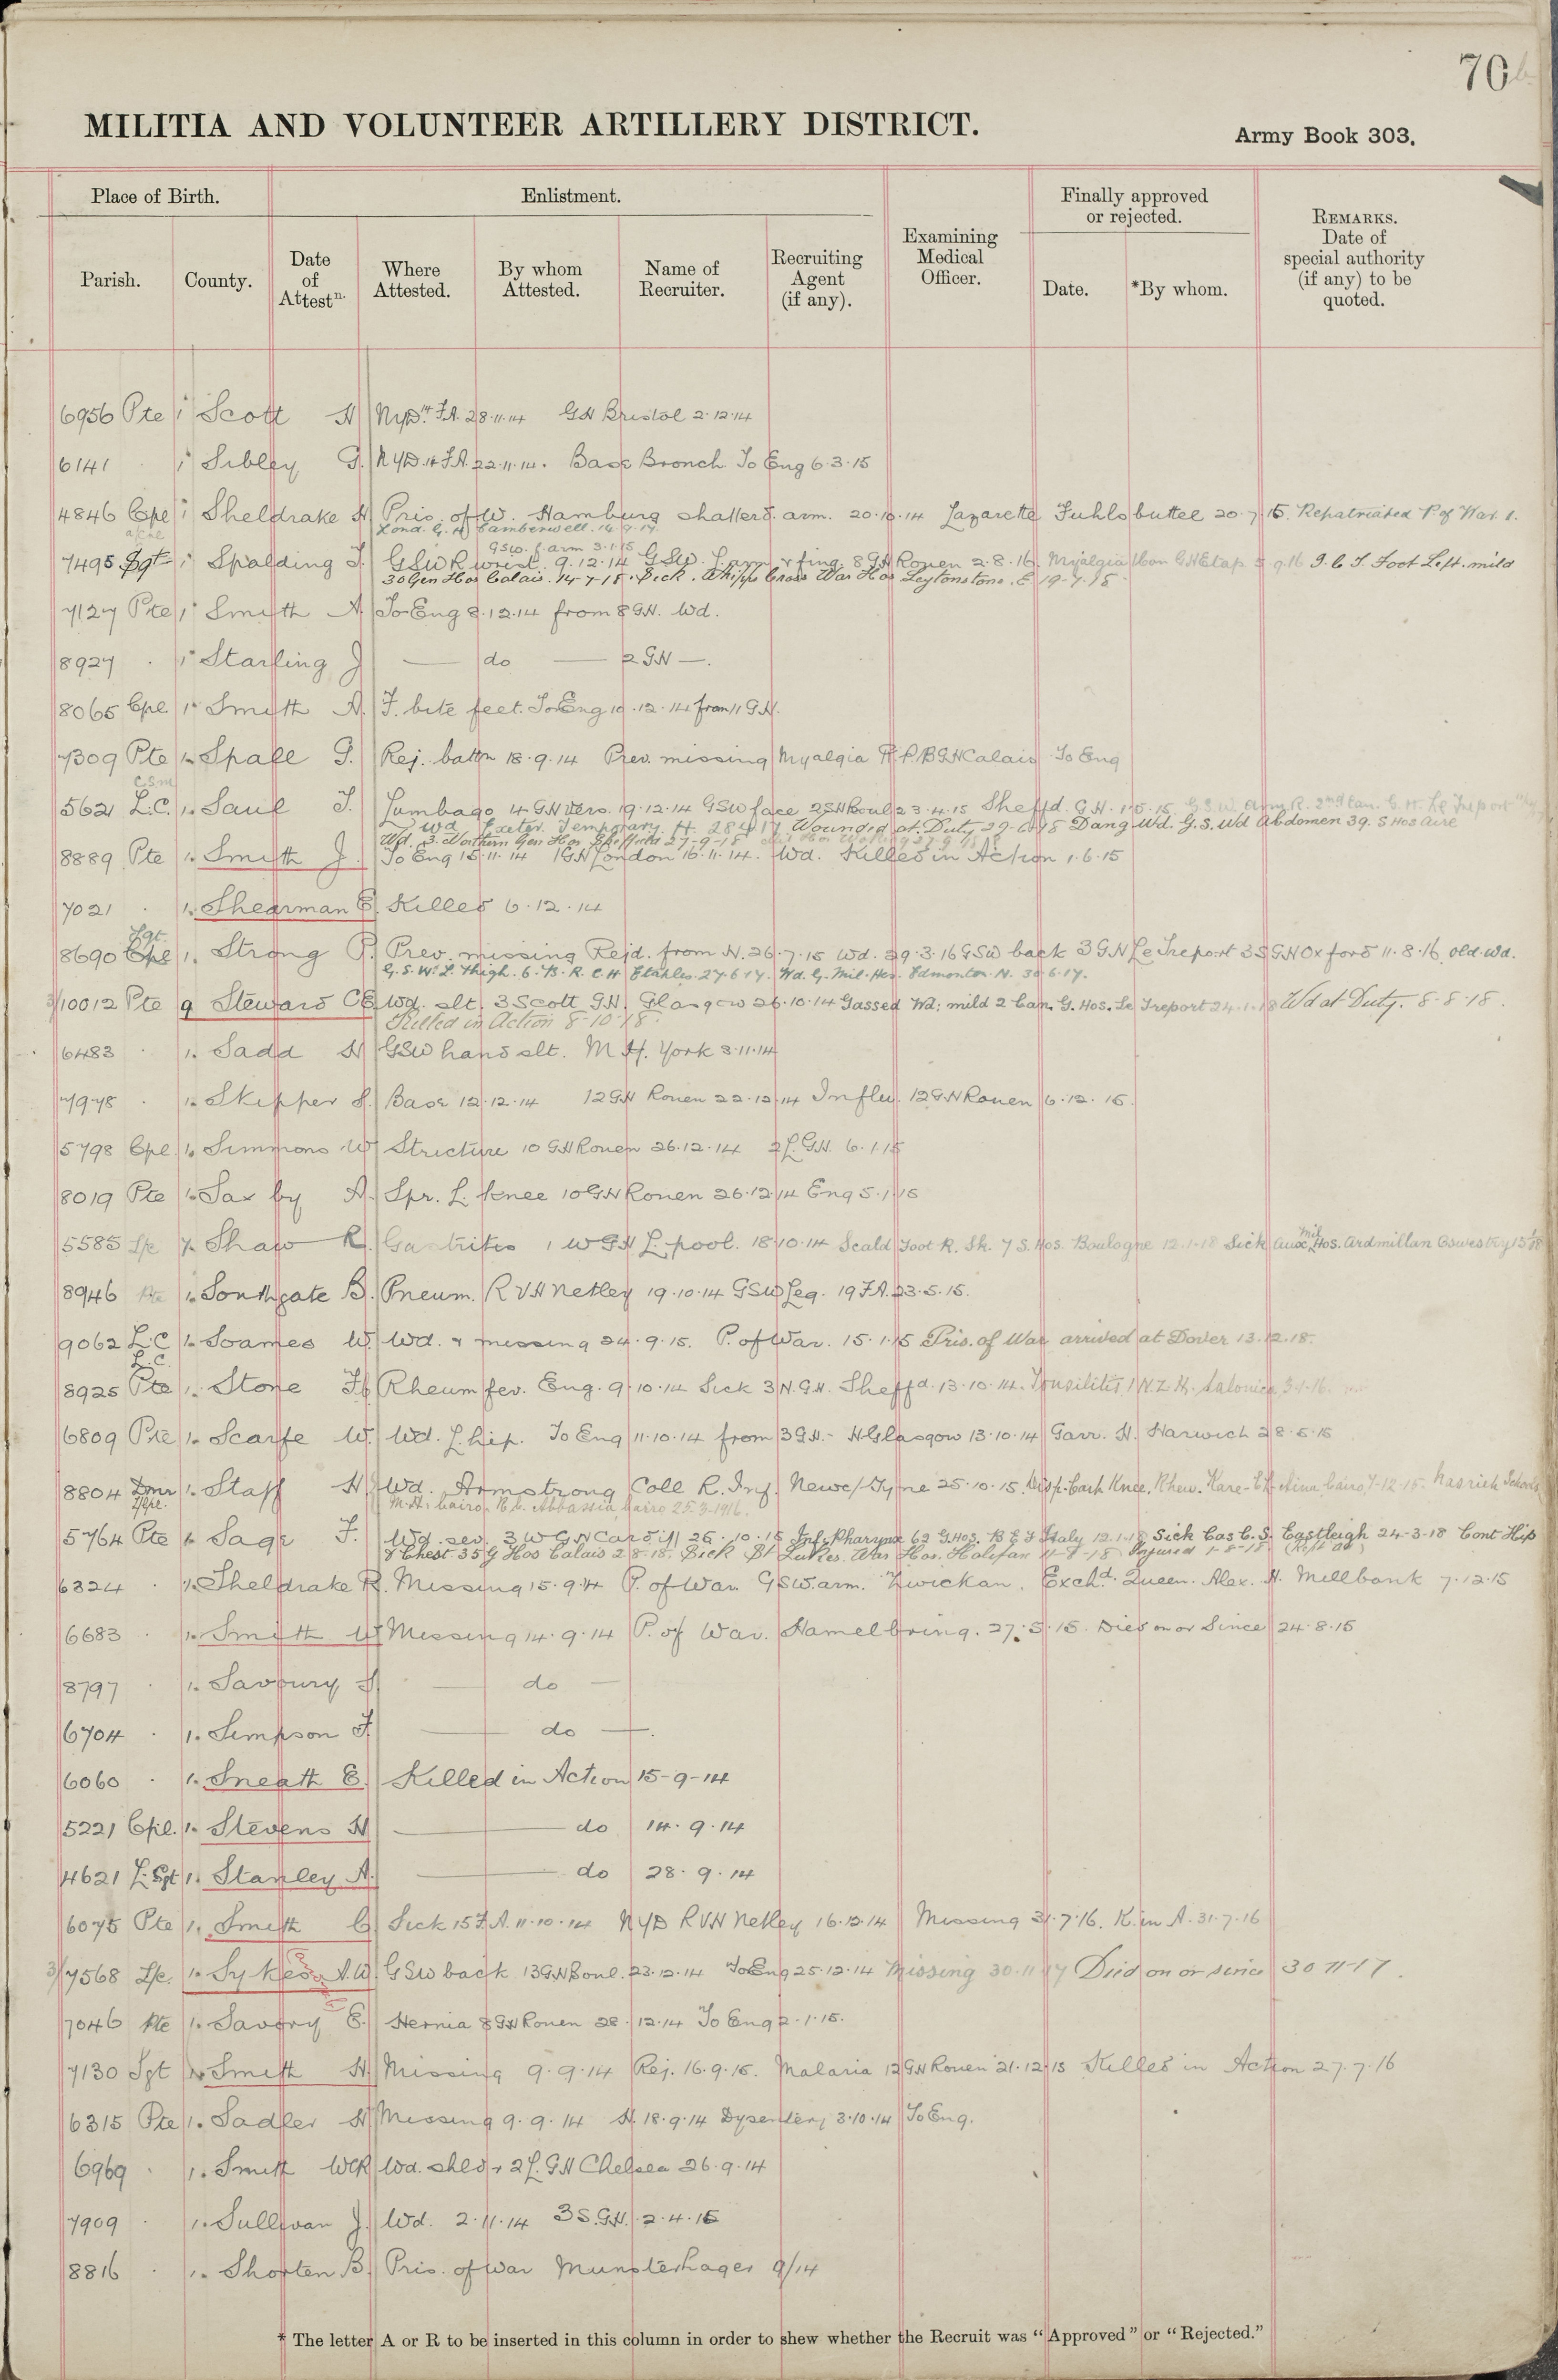 70
MILITIA AND VOLUNTEER ARTILLERY DISTRICT.
Army Book 303.
Place of Birth.
Enlistment.
Finally approved or rejected.
REMARKS. Date of special authority (if any) to be quoted.
Parish.
County.
Date of Attestn.
Where Attested.
By whom Attested.
Name of Recruiter.
Recruiting Agent (if any).
Examining Medical Officer.
Date.
*By whom.
6956 Pte 1 Scott H NYD. 14 F.A. 28.11.14 GH Bristol 2.12.14
6141 . 1 Sibley G. NYD. 14 F.A. 22.11.14. Base Bronch. To Eng 6.3.15
4846 Cpl 1 Sheldrake H Pris. of W. Hamburg shatterd. arm. 20.10.14 Lazarette Fuhlsbuttel 20.7.15. Repatriated P of War
Lond. G. H. Camberwell.
7495 Sgt 1 Spalding J. GSW R wrist 9.12.14 GSW. L arm & fing. 8 GH Rouen 2.8.16. Myalgia I.C.T. Foot Left. mild
GSW. f. arm 3.1.15
30 Gen Hos Calais. 14-7-18. Sick. Whipps Cross War Hos Leytonstone. E. 19-7-18
7127 Pte 1 Smith A. To Eng 8.12.14 from 8 GH. Wd.
8927 . 1 Starling J — do — 2 GH —.
8065 Cpl 1 Smith A. F. bite feet. To Eng 10.12.14 from 11 GH.
7309 Pte 1 Spall G. Rej. battn 18.9.14 Prev. missing Myalgia GH Calais To Eng
C.S.M
562 L.C. 1. Saul J. Lumbago 4 GH Vers. 19.12.14 GSW face 2 SH Boul 23.4.15 Sheffd. G.H. 1.5.15
Wd Exeter. Temporary. H. 28.4.17 Wounded at Duty Dang. Wd. G.S. Wd Abdomen 39. S Hos Aire
Wd. 3. Northern Gen Hos Sheffield 27-9-18
8889 Pte 1. Smith J. To Eng 15.11.14 1 GH London 16.11.14. Wd. Killed in Action 1.6.15
7021 . 1. Shearman E. Killed 6.12.14
Sgt
8690 Cpl 1. Strong P. Prev. missing Rejd. from H. 26.7.15 Wd. 29.3.16 GSW back 3 GH Le Treport 3 S GH Oxford 11.8.16. old wd.
G.S.W. L. Thigh. 6. B.R.C.H Etaples. 27.6.17. Wd. G. Mil. Hos. Edmonton. N. 30.6.17.
3/10012 Pte 9 Steward CE Wd. slt. 3 Scott GH. Glasgow 26.10.14 Gassed Wd: mild 2 Can. G. Hos. Le Treport 24.1.18 Wd at Duty. 8-8-18.
Killed in Action 8-10-18.
6483 . 1. Sadd H GSW hand slt. M.H. York 3.11.14
7978 . 1. Skipper S. Base 12.12.14 12 GH Rouen 22.12.14 Influ. 12 GH Rouen 6.12.15.
5798 Cpl 1. Simmons W Stricture 10 GH Rouen 26.12.14 2 L. GH. 6.1.15
8019 Pte 1. Saxby A. Spr. L. knee 10 GH Rouen 26.12.14 Eng 5.1.15
5585 1. Shaw R. Gastritis 1 W GH L pool. 18.10.14 Scald Foot R. Sh. 7 S. Hos. Boulogne 12.1.18 Sick Aux. Mil. Hos. Ardmillan Oswestry
8946 Pte 1. Southgate B. Pneum. RVH Netley 19.10.14 GSW Leg. 19 FA. 23.5.15.
9062 L.C 1. Soames W. Wd. & missing 24.9.15. P. of War. 15.1.15 Pris. of War arrived at Dover 13.12.18.
L.C.
8925 Pte 1. Stone H Rheum fev. Eng. 9.10.14 Sick 3 N. GH. Sheffd. 13.10.14. Tonsilitis 1 N.Z.H. Salonica 3-1-16.
6809 Pte 1. Scarfe W. Wd. L. hip. To Eng 11.10.14 from 3 GH. - H. Glasgow 13.10.14 Garr. H. Harwich 28.5.15
8804 Dmr 1. Staff H Wd. Armstrong Coll R. Inf. Newc/Tyne 25.10.15. Disp. Cart. Knee. Rheu.
M.H. Cairo. Abbassia Cairo 25.3.1916.
5764 Pte 1. Sage F. Wd. sev. 3 W GH Cardiff 26.10.15 Inf. Pharynx 62 G. Hos. B E F Italy 12.1.18 Sick Cas C.S. Eastleigh 24-3-18 Cont Hip
& Chest 35 G Hos Calais 2-8-18. Sick St Lukes. War Hos. Halifax 11-8-18 Injured 1-8-18
6324 . 1. Sheldrake R. Missing 15.9.14 P. of War. GSW. arm. Zwickau. Exchd. Queen. Alex. H. Millbank 7.12.15
6683 . 1. Smith W Missing 14.9.14 P. of War. Hamelbring. 27.3.15. Died on or Since 24.8.15
8797 . 1. Savoury S — do —
6704 . 1. Simpson F. — do —.
6060 . 1. Sneath E. Killed in Action 15-9-14
5221 Cpl. 1. Stevens H — do 14.9.14
4621 L. Sgt 1. Stanley A. — do 28.9.14
6075 Pte 1. Smith C Sick 15 F.A. 11.10.14 NYD RVH Netley 16.12.14 Missing 31.7.16. K. in A. 31.7.16
3/7568 L/c. 1. Sykes A.W. GSW back 13 GH Boul. 23.12.14 To Eng 25.12.14 Missing 30.11.17 Died on or since 30-11-17.
7046 Pte 1. Savory E. Hernia 8 GH Rouen 28.12.14 To Eng 2.1.15.
7130 Sgt 1. Smith H. Missing 9.9.14 Rej. 16.9.15. Malaria 12 GH Rouen 21.12.15 Killed in Action 27.7.16
6315 Pte 1. Sadler H Missing 9.9.14 H. 18.9.14 Dysentery 3.10.14 To Eng.
6969 . 1. Smith WCR Wd. shldr 2 L. GH Chelsea 26.9.14
7909 . 1. Sullivan J. Wd. 2.11.14 3 S. GH. 2.4.15
8816 . 1. Shorten B. Pris. of War Munsterhager 9/14
* The letter A or R to be inserted in this column in order to shew whether the Recruit was "Approved" or "Rejected."